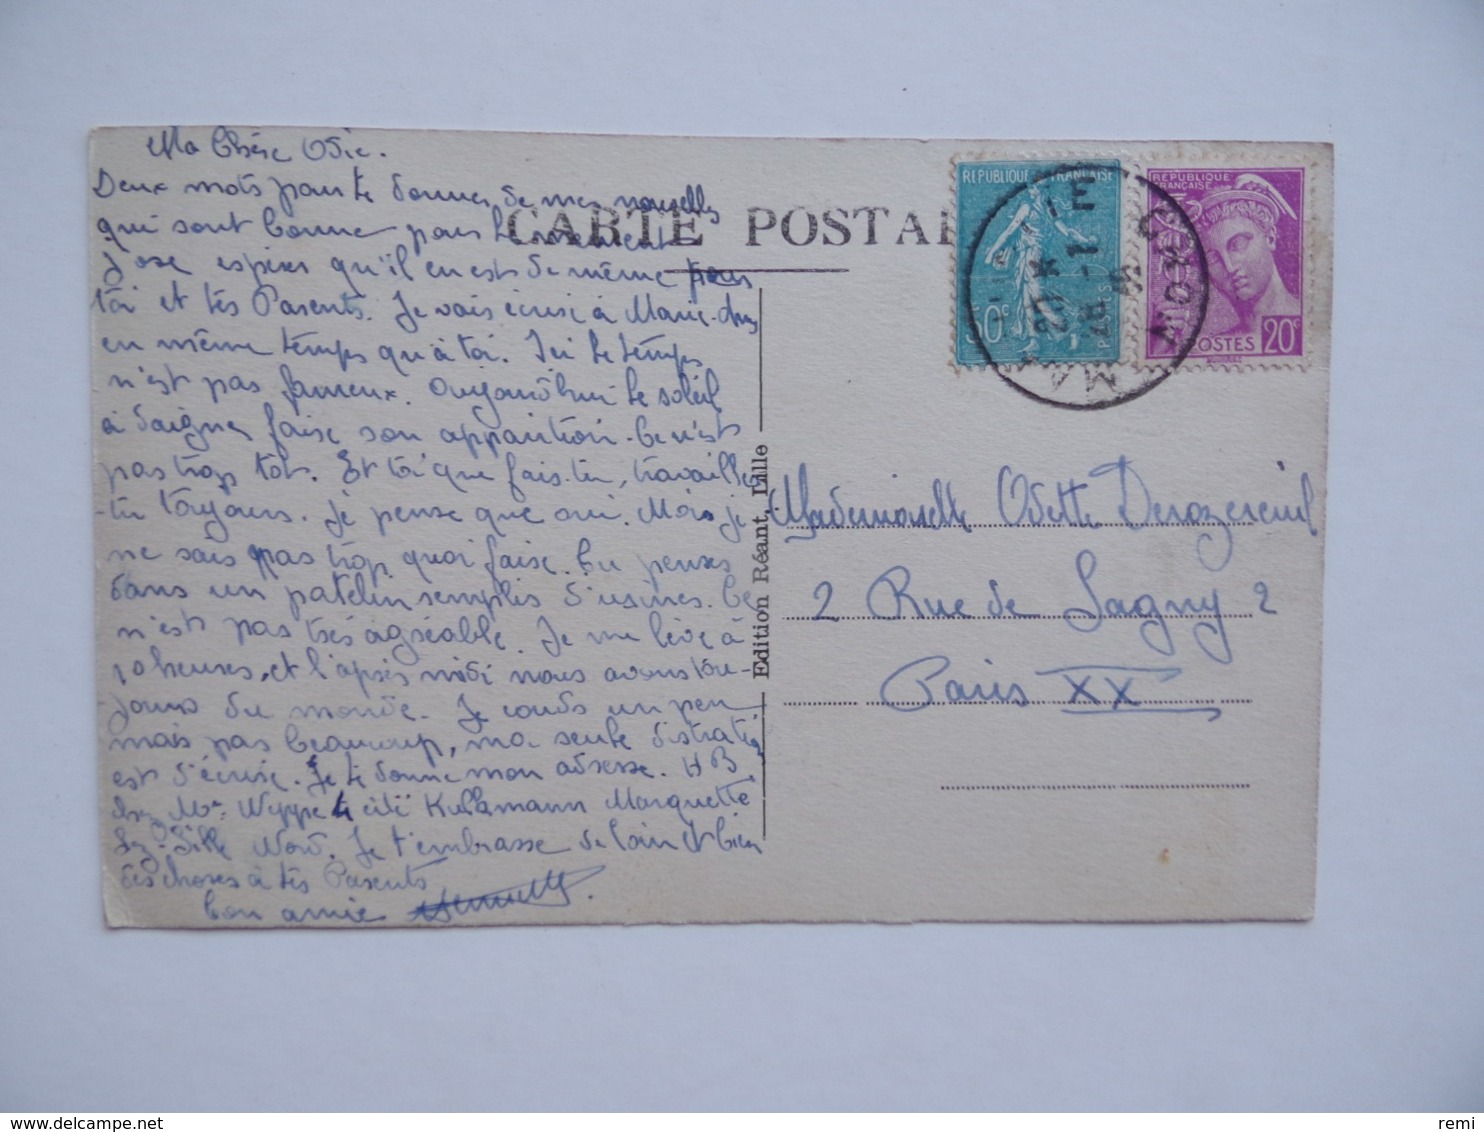 Ma Chère Odie.
Deux mots pour te donner de mes nouvelles
qui sont bonne pour le moment
J'ose espérer qu'il en est de même pour
toi et tes Parents. Je vais écrire à Marie
en même temps qu'à toi. Ici le temps
n'est pas fameux. Aujourd'hui le soleil
à daigner faire son apparition. Ce n'est
pas trop tôt. Et toi que fais-tu, travaille
-tu toujours. Je pense que oui. Mois je
ne sais pas trop quoi faire. Tu penses
dans un patelin remplis d'usines. Ce
n'est pas très agréable. Je me lève à
10 heures, et l'après midi nous avons tou-
jours du monde. Je couds un peu
mais pas beaucoup, ma seule distraction
est d'écrire. Je te donne mon adresse. HB
chez Mr Weppe 4 cité Kuhlmann Marquette
Lez-Lille Nord. Je t'embrasse de loin et bien
des choses à tes Parents
bon amie
CARTE POSTA
Edition Réant, Lille
REPUBLIQUE FRANÇAISE
0c
POSTES
REPUBLIQUE
FRANÇAISE
POSTES 20c
MA
NORD
Mademoiselle Odette Derozereuil
2 Rue de Lagny 2
Paris XX
remi
www.delcampe.net